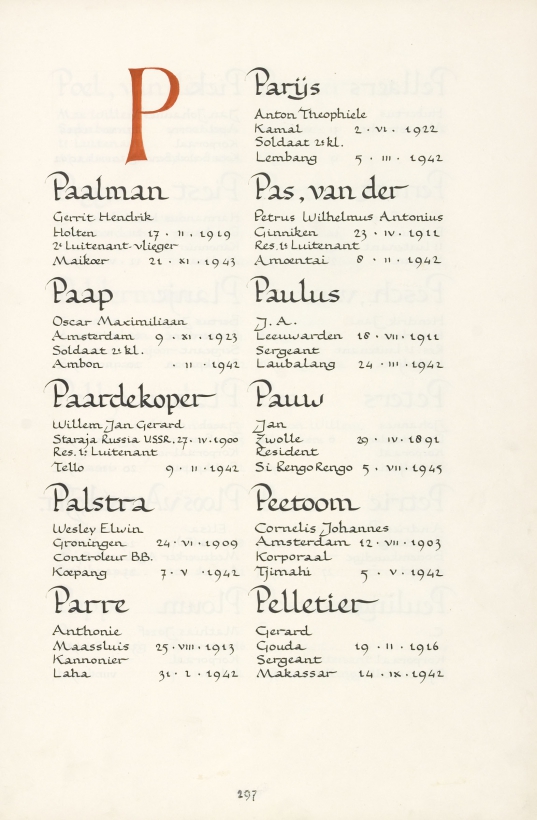 P
Paalman
Gerrit Hendrik
Holten 17 · II · 1919
2e Luitenant-vlieger
Maikoor 21 · XI · 1943
Paap
Oscar Maximiliaan
Amsterdam 9 · XI · 1923
Soldaat 2e kl.
Ambon · II · 1942
Paardekoper
Willem Jan Gerard
Staraja Russia USSR. 27 · IV · 1900
Res. 1e Luitenant
Tello 9 · II · 1942
Palstra
Wesley Elwin
Groningen 24 · VI · 1909
Controleur B.B.
Koepang 7 · V · 1942
Parre
Anthonie
Maassluis 25 · VIII · 1913
Kannonier
Laha 31 · 1 · 1942
Parijs
Anton Theophiele
Kamal 2 · VI · 1922
Soldaat 2e kl.
Lembang 5 · III · 1942
Pas, van der
Petrus Wilhelmus Antonius
Ginniken 23 · IV · 1911
Res. 1e Luitenant
Amoentai 8 · II · 1942
Paulus
J. A.
Leeuwarden 18 · VII · 1911
Sergeant
Laubalang 24 · III · 1942
Pauw
Jan
Zwolle 29 · IV · 1891
Resident
Si Rengo Rengo 5 · VII · 1945
Peetoom
Cornelis Johannes
Amsterdam 12 · VII · 1903
Korporaal
Tjimahi 5 · V · 1942
Pelletier
Gerard
Gouda 19 · II · 1916
Sergeant
Makassar 14 · IX · 1942
297